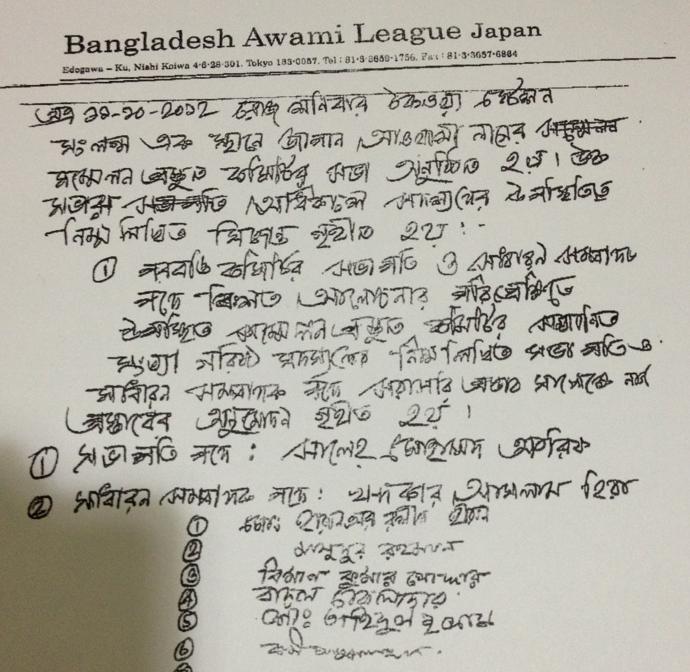 Bangladesh Awami League Japan
Edogawa - Ku, Nishi Koiwa 4-6-28-301. Tokyo 133-0057. Tel : 81-3-3659-1756. Fax : 81-3-3657-6864
অদ্য ২০১২ রোজ শনিবার ষ্টেশন
সংলগ্ন এক স্থানে জাপান আওয়ামী লীগের
সম্মেলন প্রস্তুত কমিটির সভা অনুষ্ঠিত হয়। উক্ত
সভায় সদস্যদের উপস্থিতিতে
নিম্ন লিখিত সিদ্ধান্ত গৃহীত হয় :-
① পরবর্তি কমিটির সভাপতি ও সাধারন সম্পাদক
পদে আলোচনার পরিপ্রেক্ষিতে
উপস্থিত সম্মেলন প্রস্তুত কমিটির সম্মানিত
সংখ্যা গরিষ্ঠ সদস্যদের নিম্ন লিখিত সভাপতি ও
সাধারন সম্পাদক পদে সরাসরি
প্রস্তাবের অনুমোদন গৃহীত হয়।
① সভাপতি পদে : সালেহ মোহাম্মদ আরিফ
② সাধারন সম্পাদক পদে : খন্দকার আসলাম হিরা
① মোঃ
② মাসুদুর রহমান
③ বিমান কুমার পোদ্দার
④ বাদল চাকলাদার
⑤ মোঃ
⑥